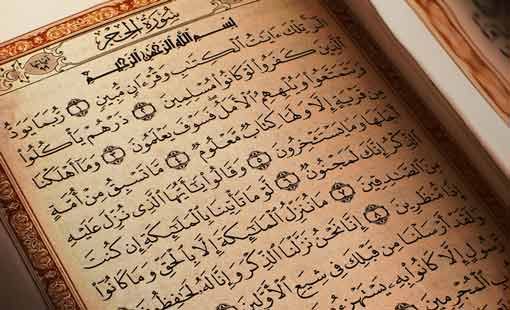 سُورَةُ الْحِجْرِ
بِسْمِ اللَّهِ الرَّحْمَٰنِ الرَّحِيمِ
الٓر تِلْكَ ءَايَٰتُ ٱلْكِتَٰبِ وَقُرْءَانٍ مُّبِينٍ ١ رُّبَمَا يَوَدُّ
ٱلَّذِينَ كَفَرُوا۟ لَوْ كَانُوا۟ مُسْلِمِينَ ٢ ذَرْهُمْ يَأْكُلُوا۟
وَيَتَمَتَّعُوا۟ وَيُلْهِهِمُ ٱلْأَمَلُ فَسَوْفَ يَعْلَمُونَ ٣ وَمَآ أَهْلَكْنَا
مِن قَرْيَةٍ إِلَّا وَلَهَا كِتَابٌ مَّعْلُومٌ ٤ مَّا تَسْبِقُ مِنْ أُمَّةٍ
أَجَلَهَا وَمَا يَسْتَـْٔخِرُونَ ٥ وَقَالُوا۟ يَٰٓأَيُّهَا ٱلَّذِى نُزِّلَ عَلَيْهِ
ٱلذِّكْرُ إِنَّكَ لَمَجْنُونٌ ٦ لَّوْ مَا تَأْتِينَا بِٱلْمَلَٰٓئِكَةِ إِن كُنتَ
مِنَ ٱلصَّٰدِقِينَ ٧ مَا نُنَزِّلُ ٱلْمَلَٰٓئِكَةَ إِلَّا بِٱلْحَقِّ وَمَا كَانُوٓا۟
إِذًا مُّنظَرِينَ ٨ إِنَّا نَحْنُ نَزَّلْنَا ٱلذِّكْرَ وَإِنَّا لَهُۥ لَحَٰفِظُونَ
وَلَقَدْ أَرْسَلْنَا مِن قَبْلِكَ فِى شِيَعِ ٱلْأَوَّلِينَ
رَّسُولٍ إِلَّا كَانُوا۟ بِهِۦ يَسْتَهْزِءُونَ
ٱلْمُجْرِمِينَ